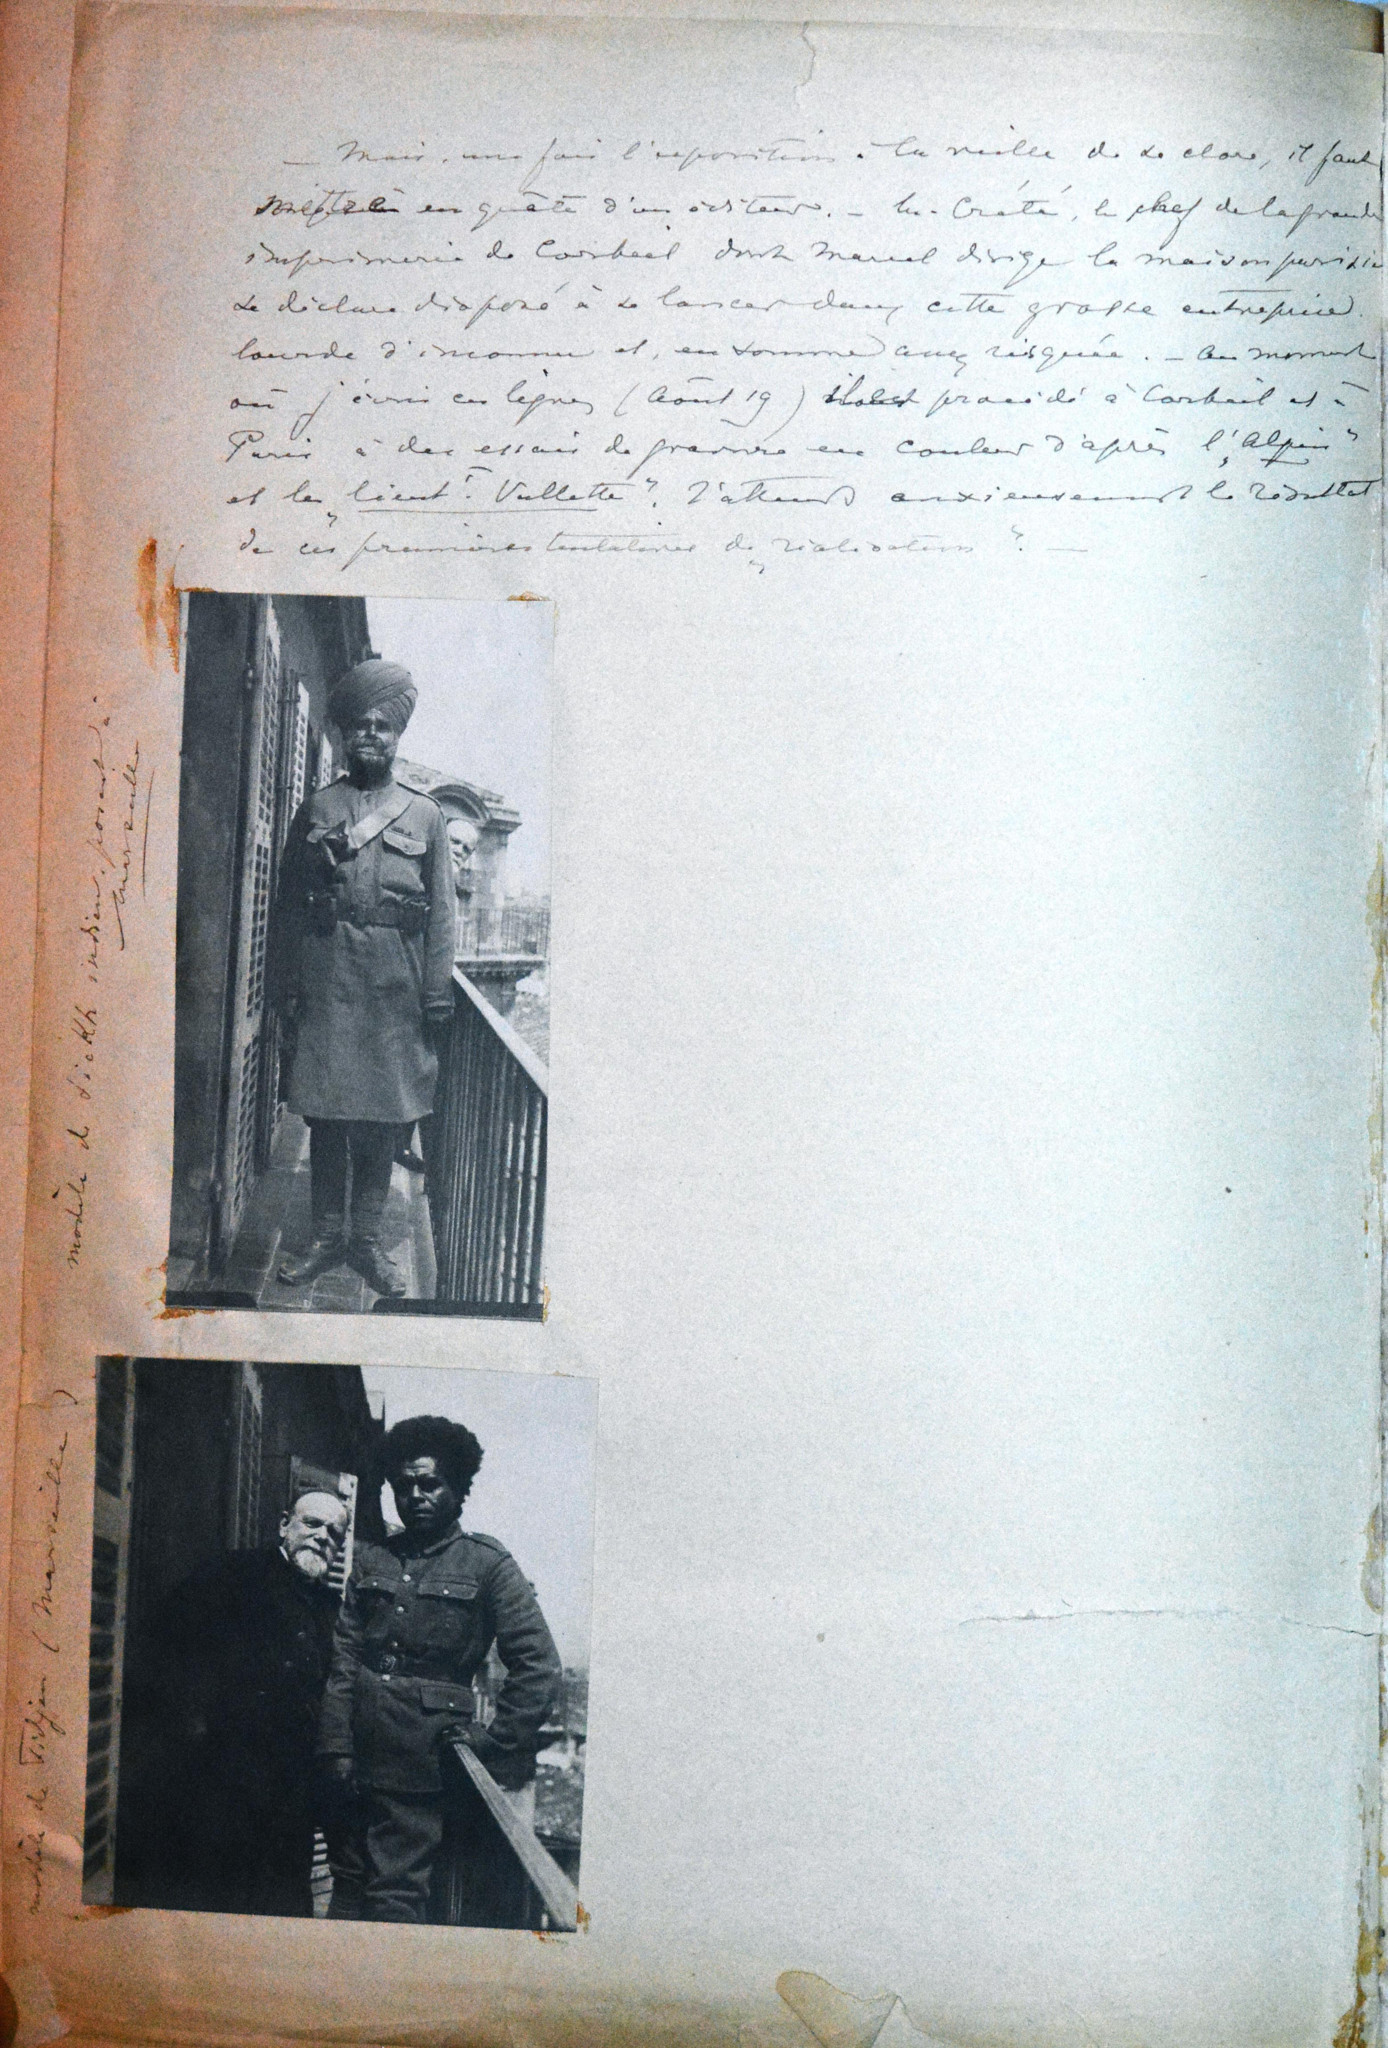 — Mais, une fois l'exposition à la veille de se clore, il faut
en quête d'un éditeur. — Mr. Crété, le chef de la grande
imprimerie de Corbeil dont Marcel dirige la maison parisie
se déclare disposé à se lancer dans cette grosse entreprise
lourde d'inconnu et, en somme assez risquée. — Au moment
où j'écris ces lignes (Août 19) il est procédé à Corbeil et à
Paris à des essais de gravure en couleur d'après l'"Alpin"
et le "lieut.t Vullette". J'attends anxieusement le résultat
de ces premières tentatives de "réalisation". —
modèle d Sickh indien, posant à
Marseille
modèle de Fidjien (Marseille)